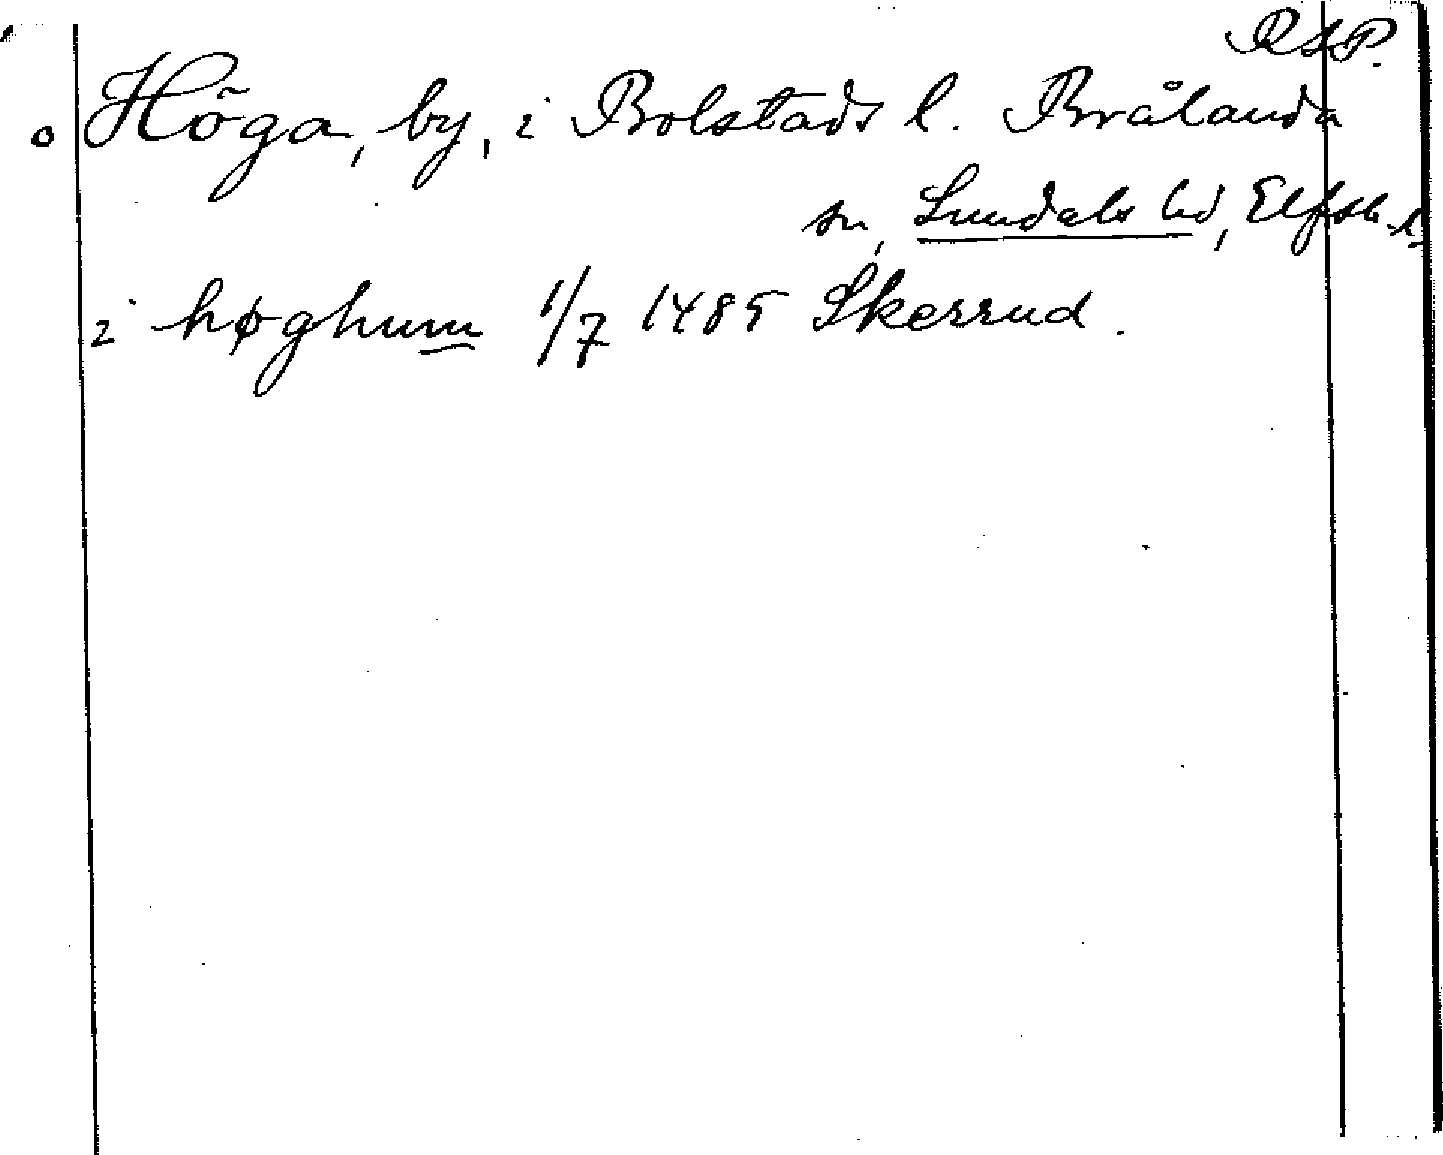 RAP.
o Höga, by, i Bolstads l. Brålanda
sn, Sundals hd, Elfsb. l.
i høghum 1/7 1485 Skerrud.